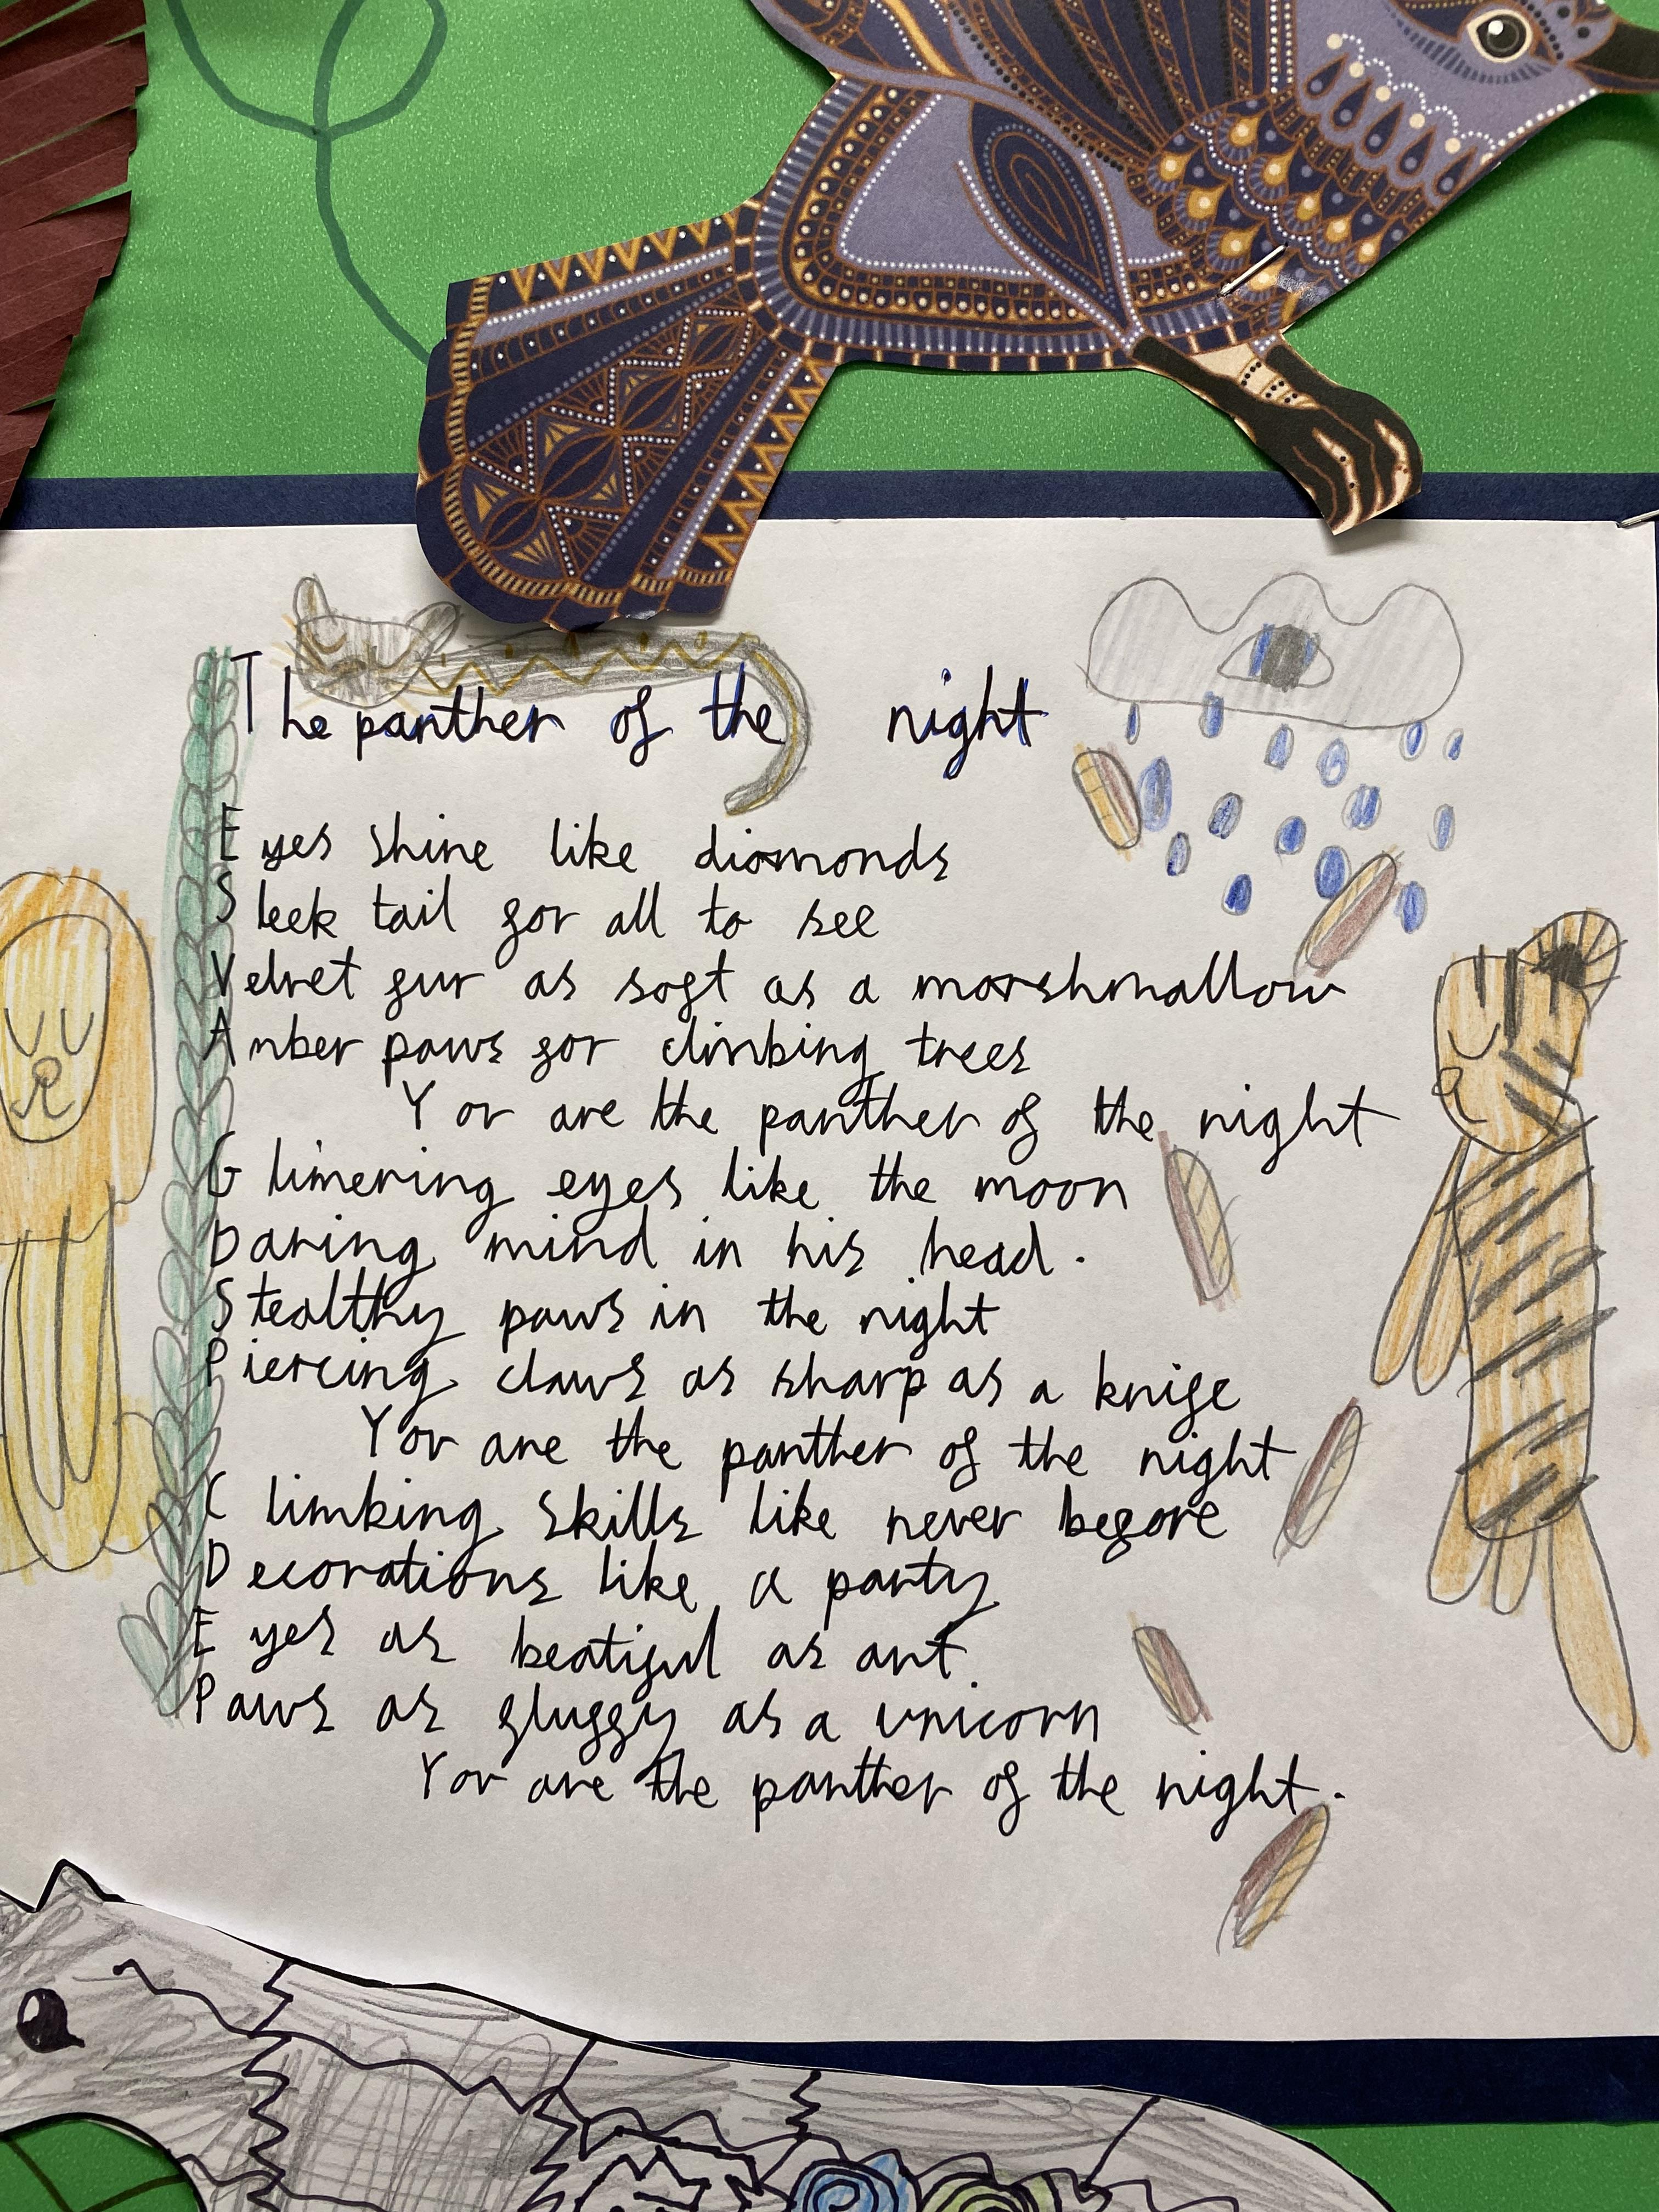 The panther of the night
Eyes shine like diamonds
Sleek tail for all to see
Velvet fur as soft as a marshmallow
Amber paws for climbing trees
You are the panther of the night
Glimering eyes like the moon
Daring mind in his head.
Stealthy paws in the night
Piercing claws as sharp as a knife
You are the panther of the night
Climbing skills like never before
Decorations like a party
Eyes as beatiful as art
Paws as fluffy as a unicorn
You are the panther of the night.